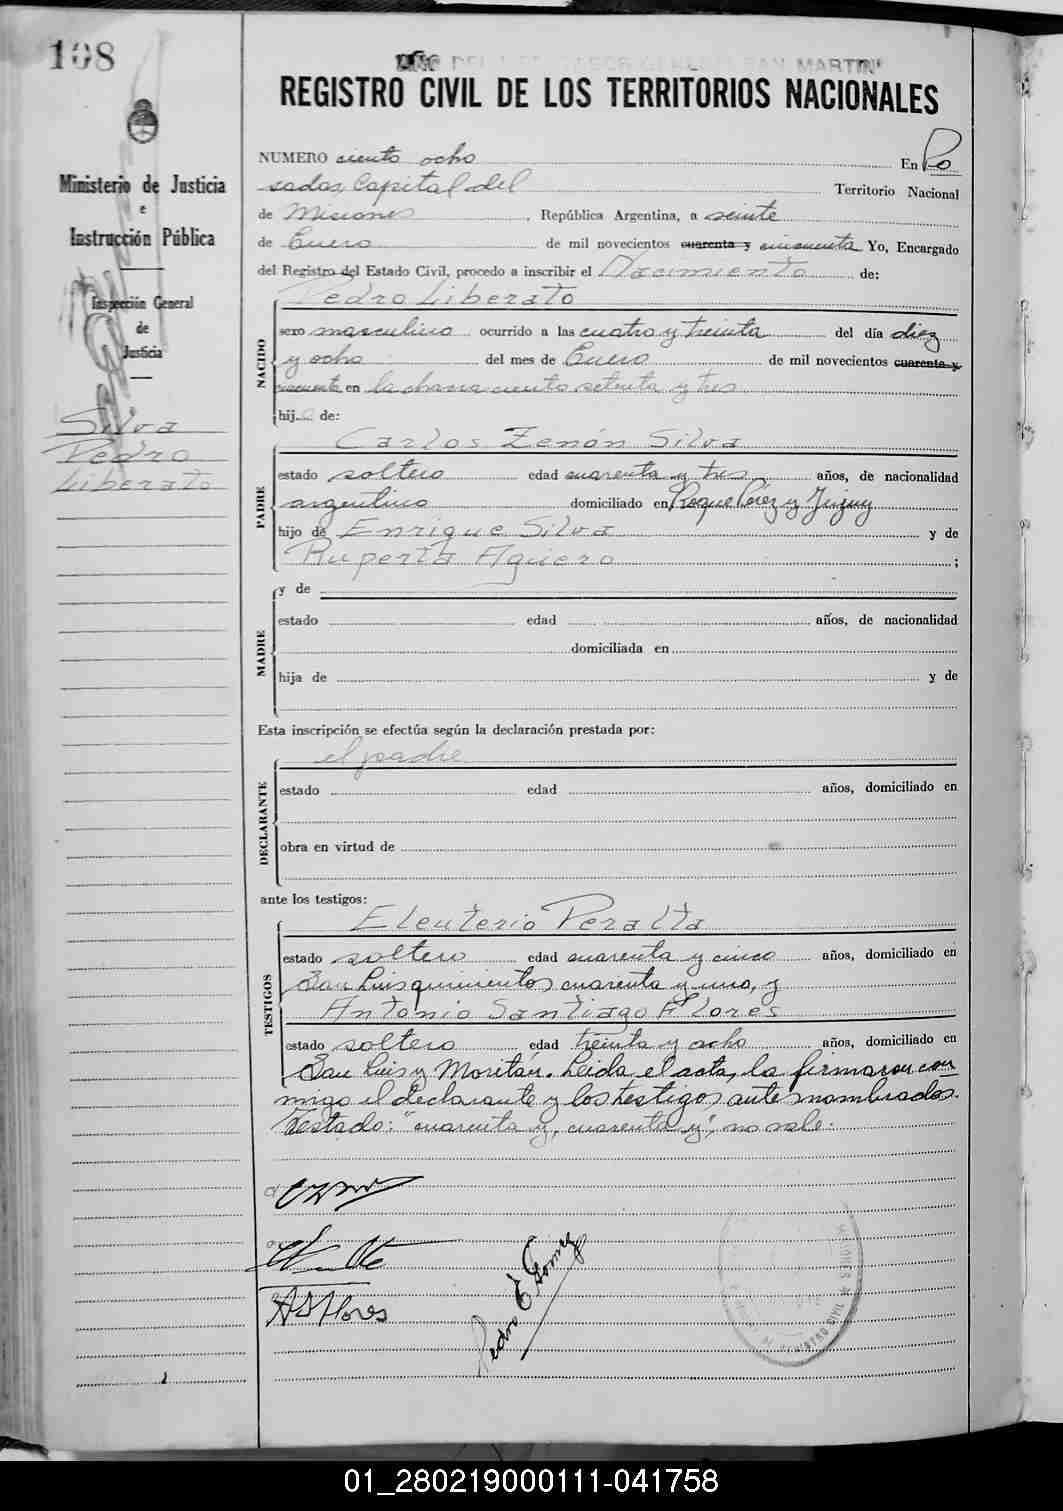 108
AÑO DEL LIBERTADOR GENERAL SAN MARTIN
REGISTRO CIVIL DE LOS TERRITORIOS NACIONALES
Ministerio de Justicia
e
Instrucción Pública
Inspección General
de
Justicia
Silva
Pedro
Liberato
NUMERO ciento ocho En Po
sadas, Capital del Territorio Nacional
de Misiones, República Argentina, a veinte
de Enero de mil novecientos cuarenta y cincuenta Yo, Encargado
del Registro del Estado Civil, procedo a inscribir el Nacimiento de:
NACIDO
Pedro Liberato
sexo masculino ocurrido a las cuatro y treinta del día diez
y ocho del mes de Enero de mil novecientos cuarenta y
cincuenta en la chacra ciento setenta y tres
hijo de:
PADRE
Carlos Zenón Silva
estado soltero edad cuarenta y tres años, de nacionalidad
argentino domiciliado en Roque Pérez y Jujuy
hijo de Enrique Silva y de
Ruperta Agüero ;
MADRE
y de
estado edad años, de nacionalidad
domiciliada en
hija de y de
Esta inscripción se efectúa según la declaración prestada por:
el padre
DECLARANTE
estado edad años, domiciliado en
obra en virtud de
ante los testigos:
TESTIGOS
Eleuterio Peralta
estado soltero edad cuarenta y cinco años, domiciliado en
San Luis quinientos cuarenta y uno, y
Antonio Santiago Flores
estado soltero edad treinta y ocho años, domiciliado en
San Luis y Moritán. Leida el acta, la firmaron con
migo el declarante y los testigos antes nombrados.
Testado: "cuarenta y, cuarenta y", no vale.
A S Flores
Pedro E Gomez
MISIONES
REGISTRO CIVIL
01_280219000111-041758